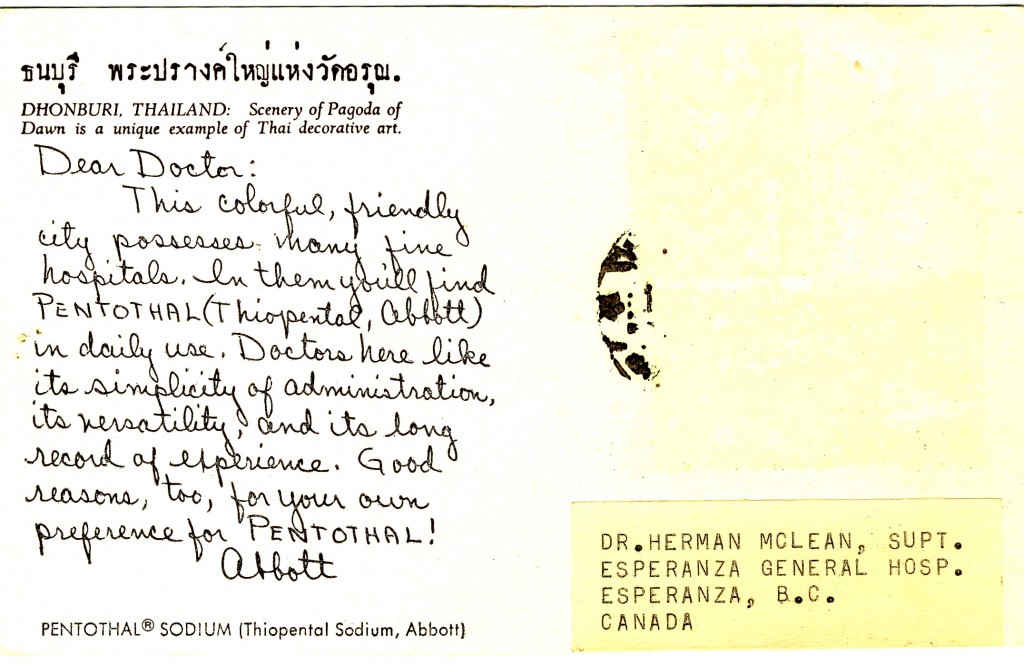 ธนบุรี พระปรางค์ใหญ่แห่งวัดอรุณ.
DHONBURI, THAILAND: Scenery of Pagoda of
Dawn is a unique example of Thai decorative art.
Dear Doctor:
This colorful, friendly
city possesses many fine
hospitals. In them you'll find
PENTOTHAL (Thiopental, Abbott)
in daily use. Doctors here like
its simplicity of administration,
its versatility, and its long
record of experience. Good
reasons, too, for your own
preference for PENTOTHAL!
Abbott
PENTOTHAL® SODIUM (Thiopental Sodium, Abbott)
DR.HERMAN MCLEAN, SUPT.
ESPERANZA GENERAL HOSP.
ESPERANZA, B.C.
CANADA